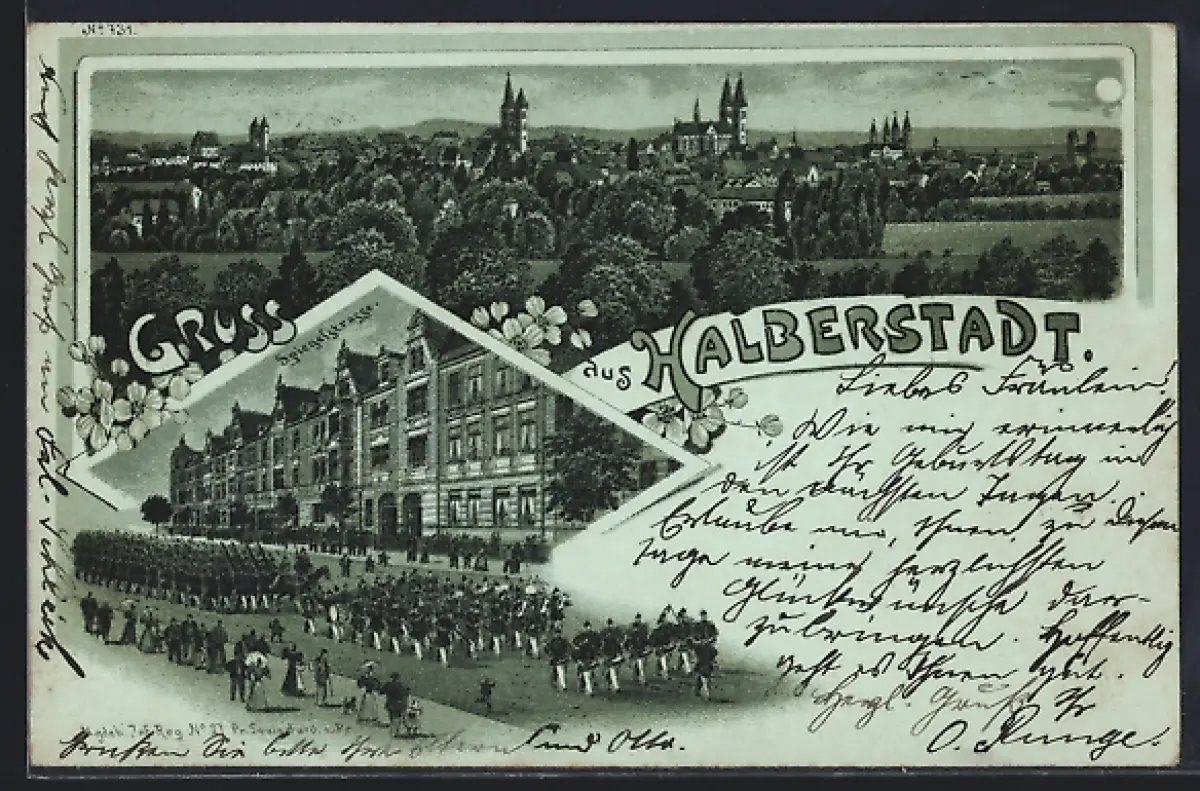 No 731.
GRUSS
Spiegelstrasse.
aus HALBERSTADT.
Liebes Fräulein!
Wie mir erinnerlich
ist Ihr Geburtstag in
den nächsten Tagen.
Erlaube mir, Ihnen zu diesem
Tage meine herzlichsten
Glückwünsche dar-
zubringen. Hoffentlich
geht es Ihnen gut.
Herzl. Gruß Ihr
O. Runge.
Magdeb. Inf. Reg. No 27 Pr. Louis Ferd. v. Pr.
Grüssen Sie bitte Ihre Eltern und Otto.
Gruß von